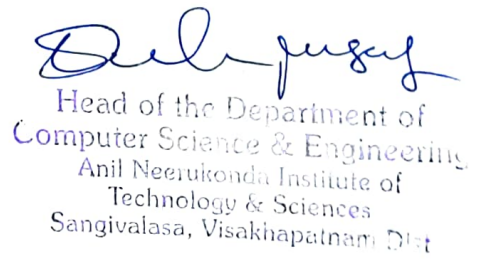 Head of the Department of
Computer Science & Engineering
Anil Neerukonda Institute of
Technology & Sciences
Sangivalasa, Visakhapatnam Dist